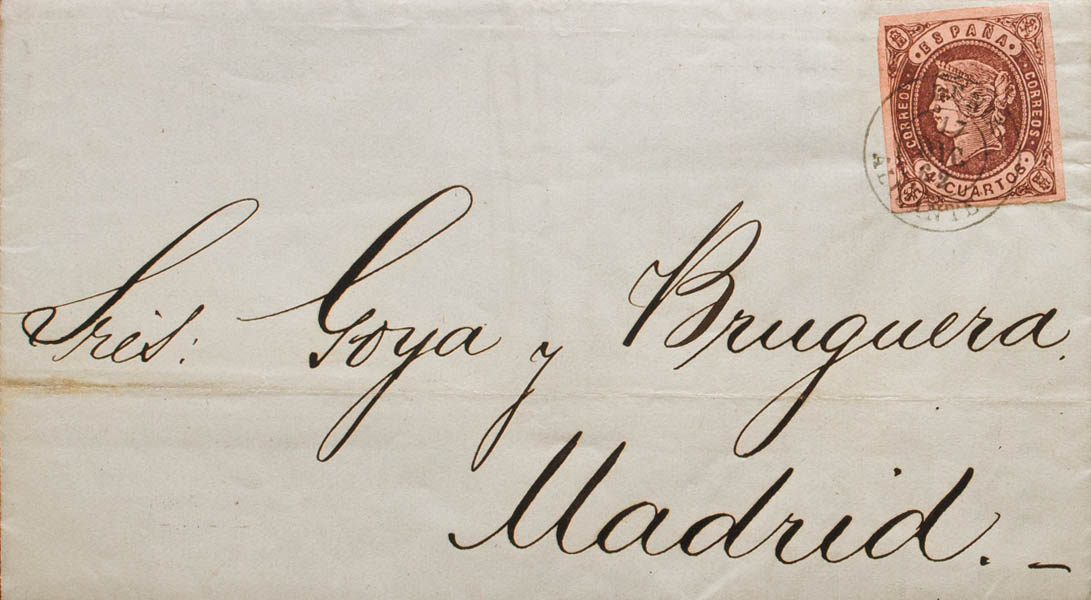 ESPAÑA
CORREOS
CORREOS
CUARTOS
17
DIC
Sres: Goya y Bruguera.
Madrid.